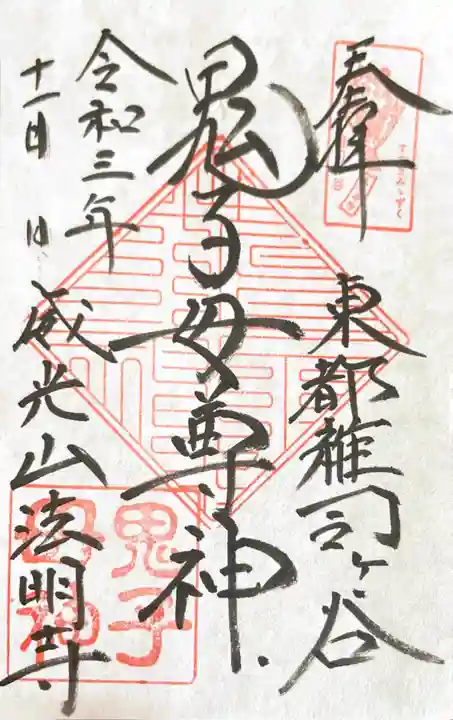 奉拝
東都雑司ヶ谷
鬼子母尊神
令和三年
十一月 日
威光山法明寺
すすきみみずく
鬼子
母神